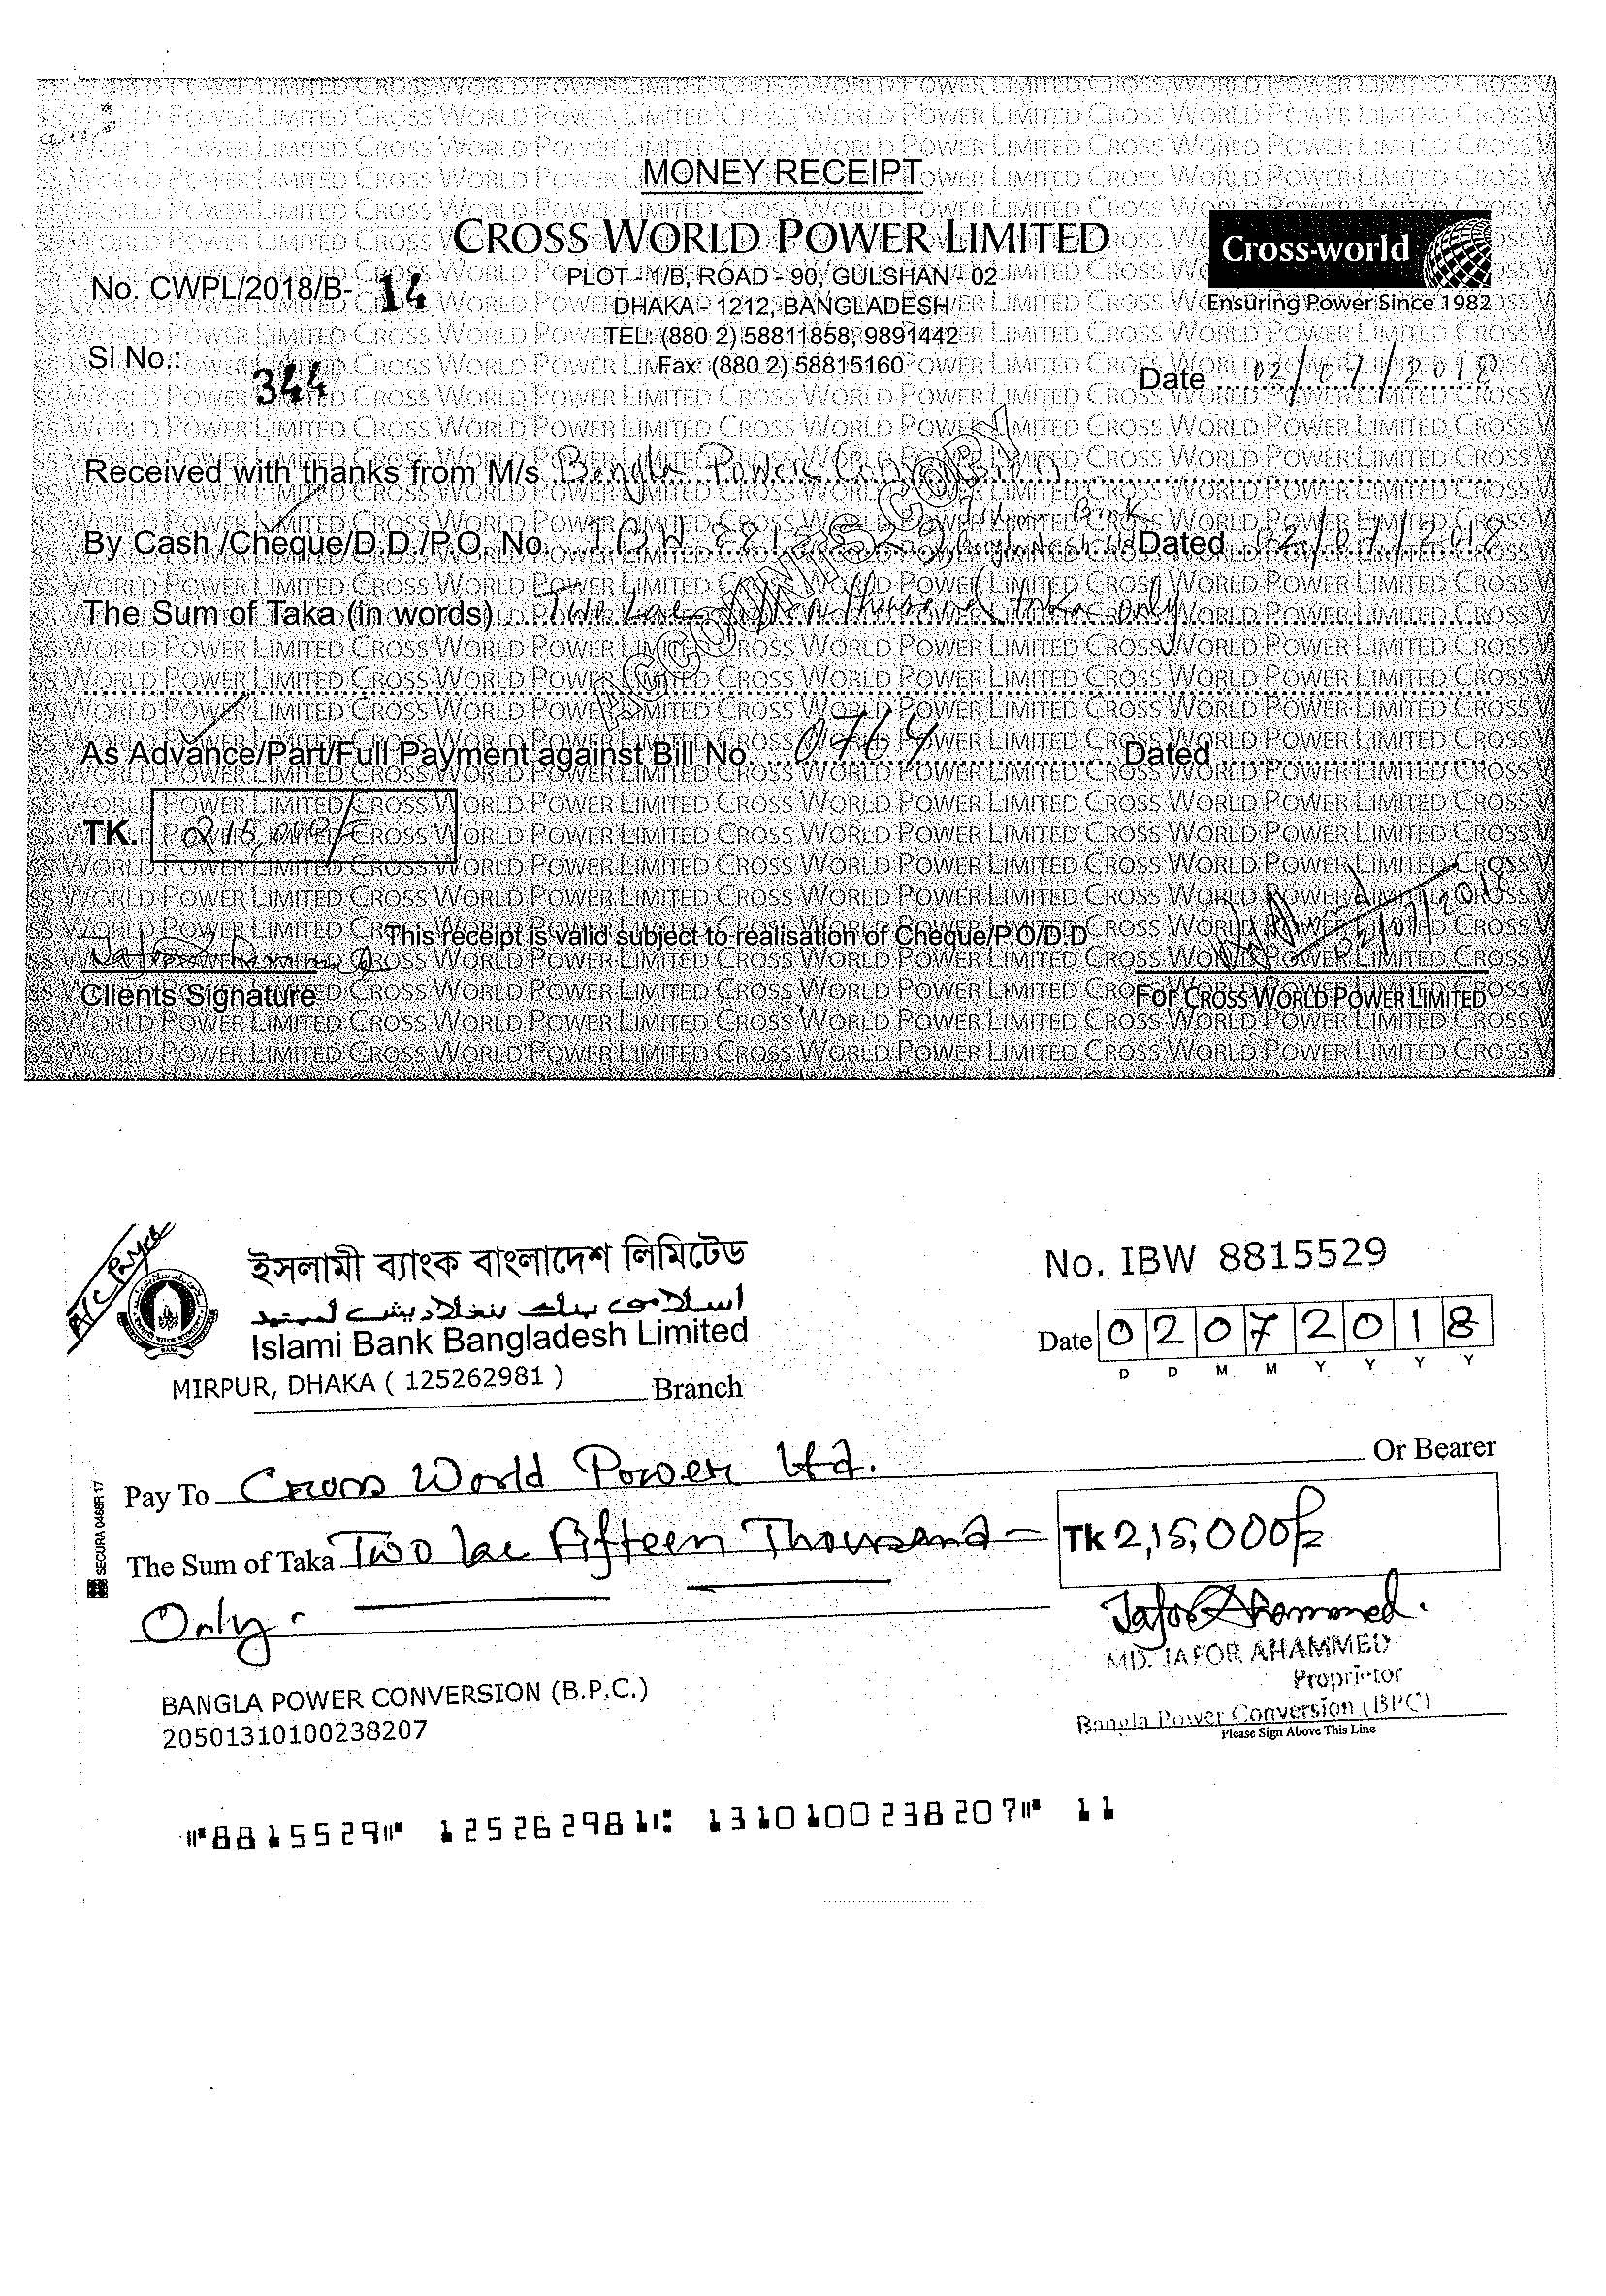 MONEY RECEIPT
CROSS WORLD POWER LIMITED
Cross-world
PLOT - 1/B, ROAD - 90, GULSHAN - 02
No. CWPL/2018/B- 14
DHAKA - 1212, BANGLADESH
Ensuring Power Since 1982
TEL: (880 2) 58811858, 9891442
Sl No.: 344
Fax: (880 2) 58815160
Date 02/07/2018
Received with thanks from M/s Bangla Power Conversion
By Cash /Cheque/D.D./P.O. No. Dated 02/07/2018
The Sum of Taka (in words) Two Lac thousand taka only
ACCOUNTS COPY
As Advance/Part/Full Payment against Bill No 0764 Dated
TK. 215,000/=
02/07/2018
This receipt is valid subject to realisation of Cheque/P.O/D.D
Clients Signature
For CROSS WORLD POWER LIMITED
A/C Payee
ইসলামী ব্যাংক বাংলাদেশ লিমিটেড
No. IBW 8815529
اسلامى بنك بنغلاديش لميتيد
Islami Bank Bangladesh Limited
Date 02072018
D D M M Y Y Y Y
MIRPUR, DHAKA ( 125262981 ) Branch
Pay To Cross World Power Ltd. Or Bearer
The Sum of Taka Two lac Fifteen Thousand - Tk 2,15,000/=
Only.
SECURA 0468R 17
Jafor Ahammed.
MD. JAFOR AHAMMED
Proprietor
Bangla Power Conversion (BPC)
Please Sign Above This Line
BANGLA POWER CONVERSION (B.P.C.)
20501310100238207
⑈8815529⑈ 125262981⑆ 1310100238207⑈ 11